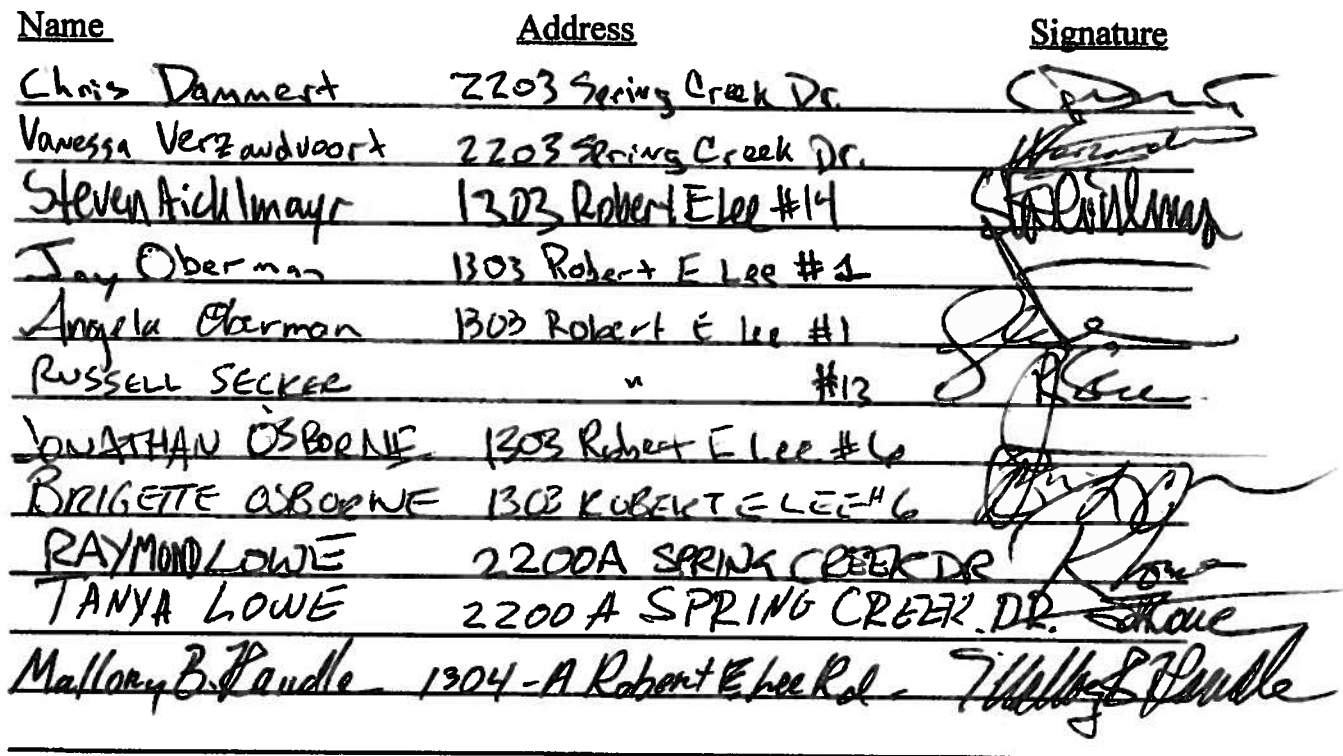 Name Address Signature
Chris Dammert 2203 Spring Creek Dr.
Vanessa Verzandvoort 2203 Spring Creek Dr.
Steven Aicklmayr 1303 Robert E Lee #14
Jay Oberman 1303 Robert E Lee #1
Angela Oberman 1303 Robert E Lee #1
RUSSELL SECKER " #13
JONATHAN OSBORNE 1303 Robert E Lee #6
BRIGETTE OSBORNE 1303 ROBERT E LEE #6
RAYMOND LOWE 2200A SPRING CREEK DR
TANYA LOWE 2200 A SPRING CREEK DR.
Mallory B. Haudle 1304-A Robert E Lee Rd.